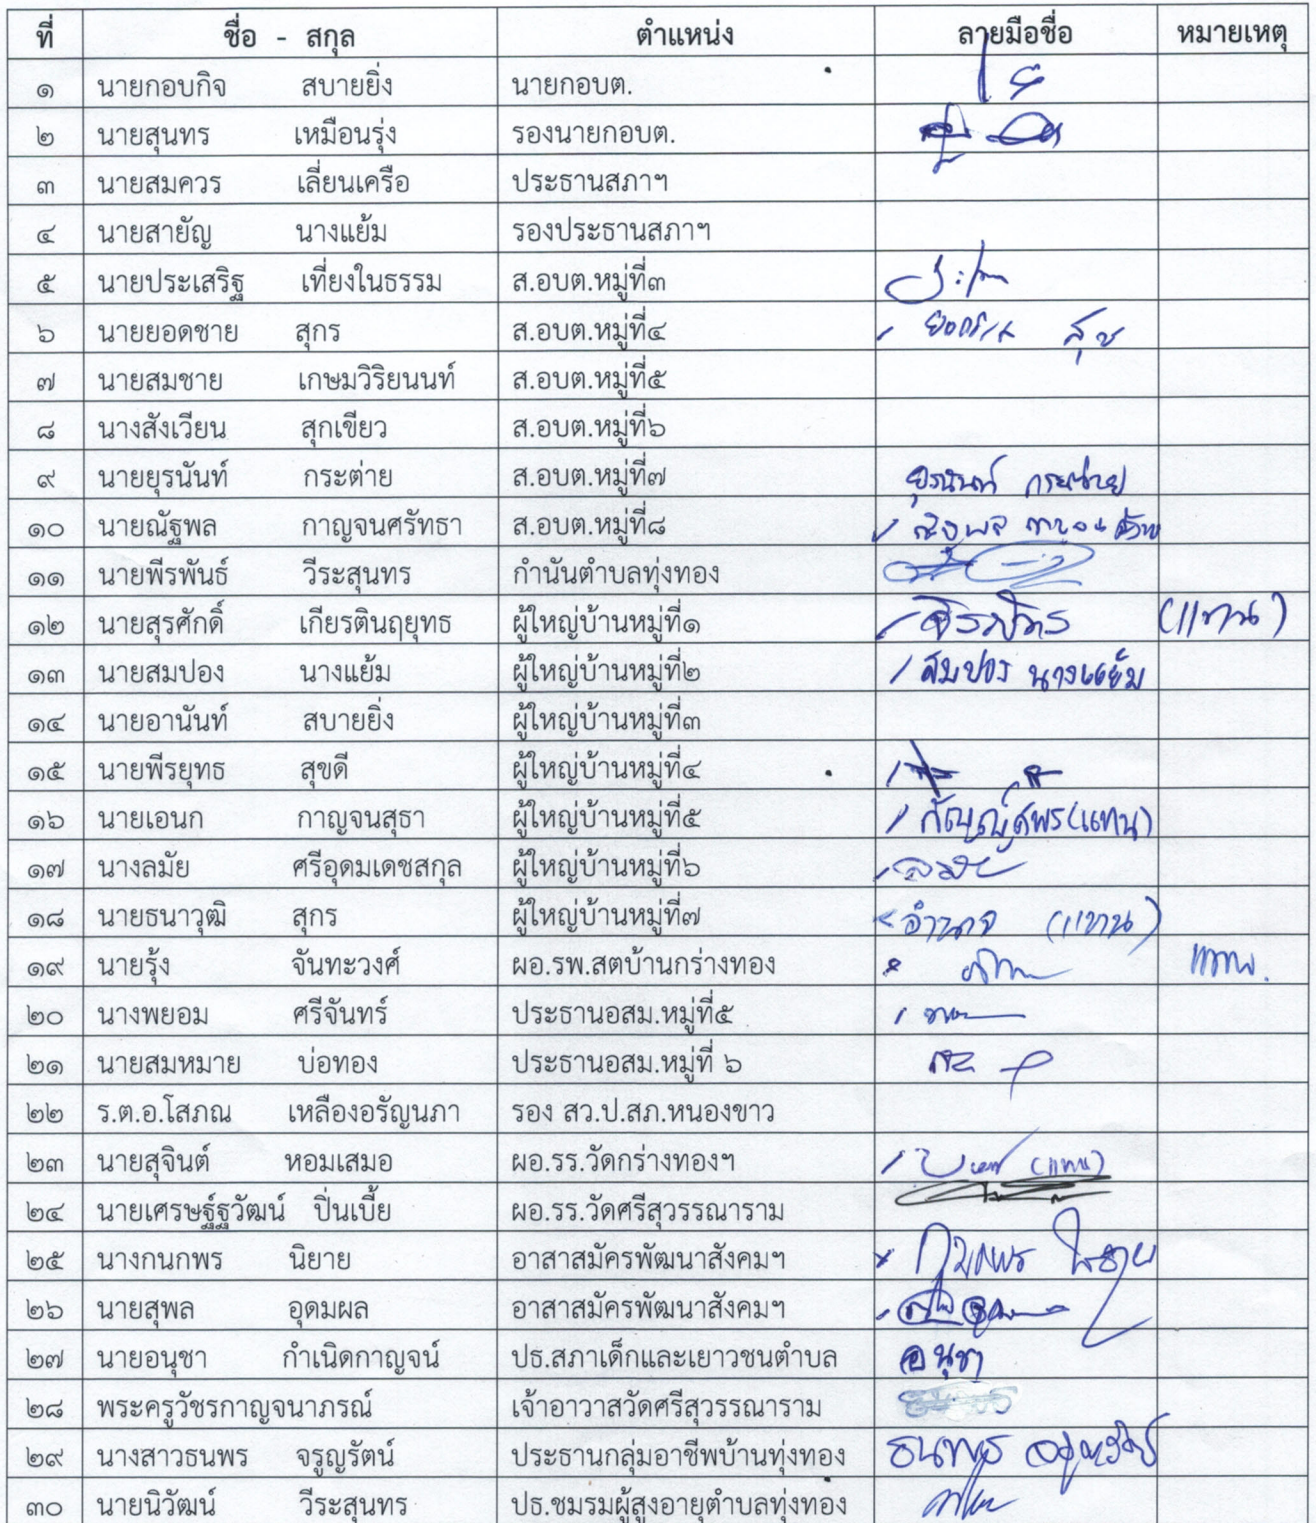 ที่ ชื่อ - สกุล ตำแหน่ง ลายมือชื่อ หมายเหตุ
๑ นายกอบกิจ สบายยิ่ง นายกอบต.
๒ นายสุนทร เหมือนรุ่ง รองนายกอบต.
๓ นายสมควร เลี่ยนเครือ ประธานสภาฯ
๔ นายสายัญ นางแย้ม รองประธานสภาฯ
๕ นายประเสริฐ เที่ยงในธรรม ส.อบต.หมู่ที่๓
๖ นายยอดชาย สุกร ส.อบต.หมู่ที่๔
๗ นายสมชาย เกษมวิริยนนท์ ส.อบต.หมู่ที่๕
๘ นางสังเวียน สุกเขียว ส.อบต.หมู่ที่๖
๙ นายยุรนันท์ กระต่าย ส.อบต.หมู่ที่๗ ยุรนันท์ กระต่าย
๑๐ นายณัฐพล กาญจนศรัทธา ส.อบต.หมู่ที่๘ ณัฐพล
๑๑ นายพีรพันธ์ วีระสุนทร กำนันตำบลทุ่งทอง
๑๒ นายสุรศักดิ์ เกียรตินฤยุทธ ผู้ใหญ่บ้านหมู่ที่๑ (แทน)
๑๓ นายสมปอง นางแย้ม ผู้ใหญ่บ้านหมู่ที่๒ / สมปอง นางแย้ม
๑๔ นายอานันท์ สบายยิ่ง ผู้ใหญ่บ้านหมู่ที่๓
๑๕ นายพีรยุทธ สุขดี ผู้ใหญ่บ้านหมู่ที่๔
๑๖ นายเอนก กาญจนสุธา ผู้ใหญ่บ้านหมู่ที่๕ (แทน)
๑๗ นางลมัย ศรีอุดมเดชสกุล ผู้ใหญ่บ้านหมู่ที่๖ ลมัย
๑๘ นายธนาวุฒิ สุกร ผู้ใหญ่บ้านหมู่ที่๗ อำนาจ (แทน)
๑๙ นายรุ้ง จันทะวงศ์ ผอ.รพ.สตบ้านกร่างทอง แทน.
๒๐ นางพยอม ศรีจันทร์ ประธานอสม.หมู่ที่๕
๒๑ นายสมหมาย บ่อทอง ประธานอสม.หมู่ที่ ๖
๒๒ ร.ต.อ.โสภณ เหลืองอรัญนภา รอง สว.ป.สภ.หนองขาว
๒๓ นายสุจินต์ หอมเสมอ ผอ.รร.วัดกร่างทองฯ (แทน)
๒๔ นายเศรษฐ์ฐวัฒน์ ปิ่นเบี้ย ผอ.รร.วัดศรีสุวรรณาราม
๒๕ นางกนกพร นิยาย อาสาสมัครพัฒนาสังคมฯ
๒๖ นายสุพล อุดมผล อาสาสมัครพัฒนาสังคมฯ
๒๗ นายอนุชา กำเนิดกาญจน์ ปธ.สภาเด็กและเยาวชนตำบล อนุชา
๒๘ พระครูวัชรกาญจนาภรณ์ เจ้าอาวาสวัดศรีสุวรรณาราม
๒๙ นางสาวธนพร จรูญรัตน์ ประธานกลุ่มอาชีพบ้านทุ่งทอง ธนพร จรูญรัตน์
๓๐ นายนิวัฒน์ วีระสุนทร ปธ.ชมรมผู้สูงอายุตำบลทุ่งทอง